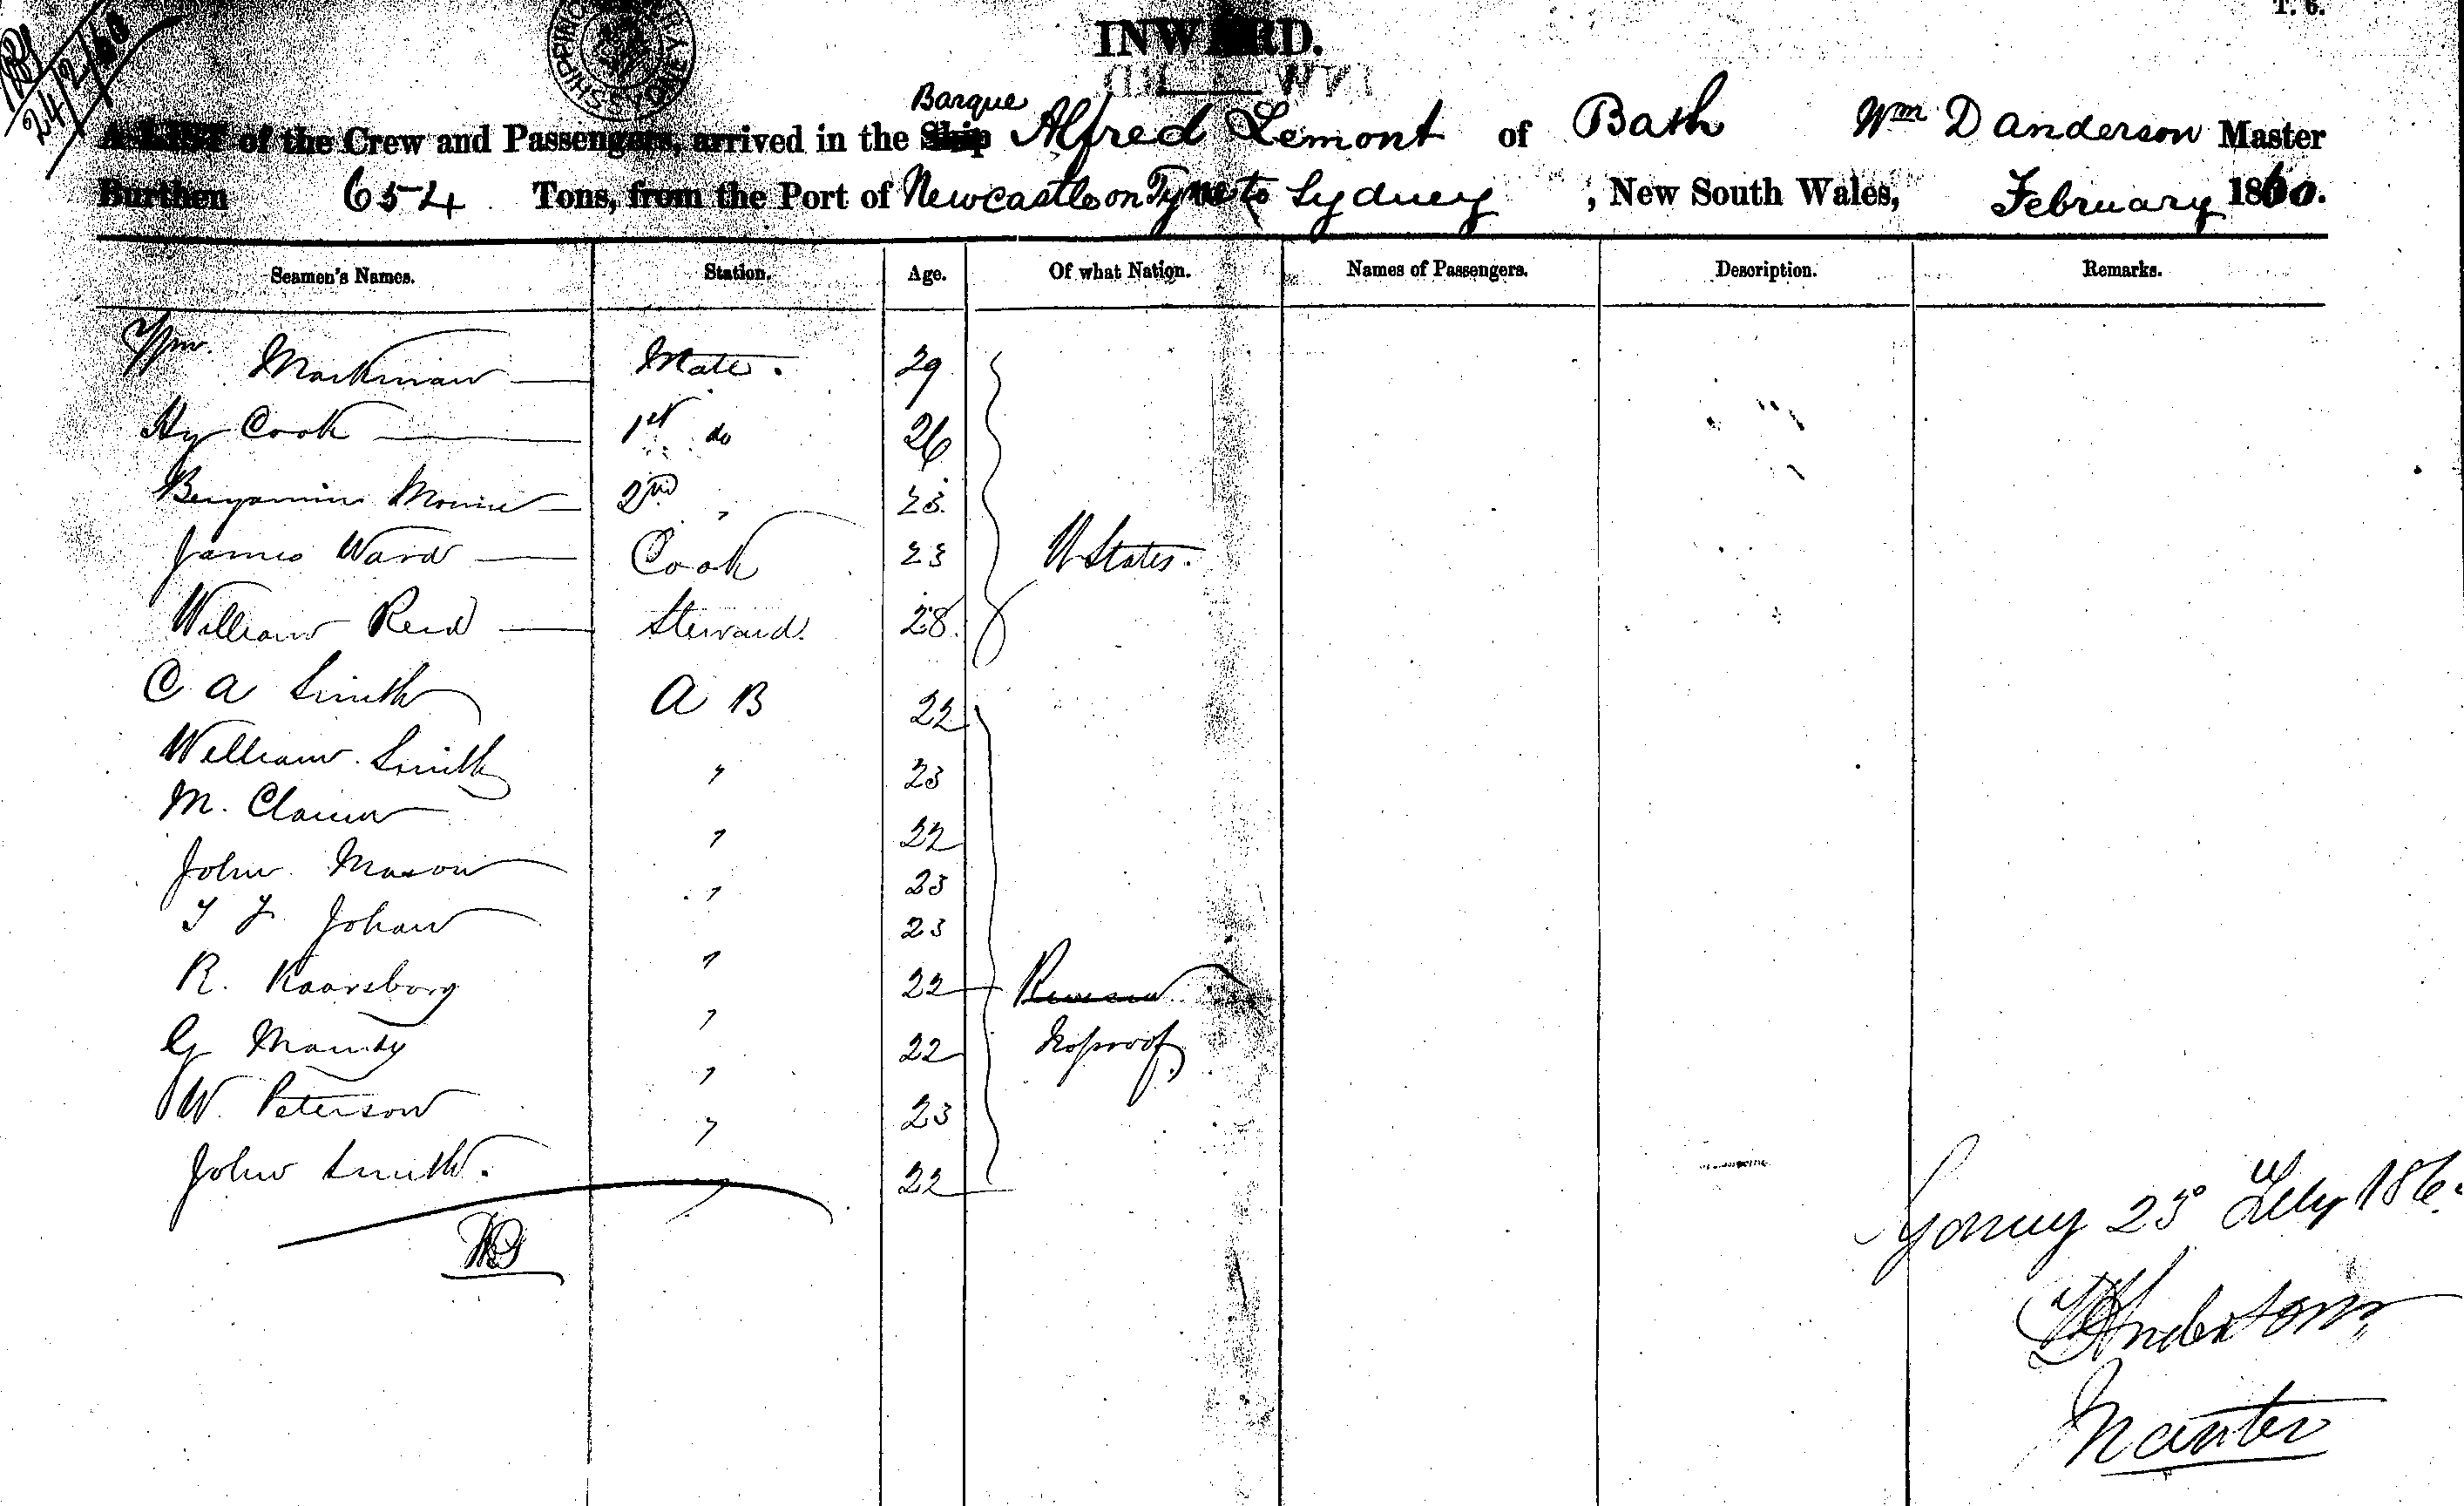 T. 6.
24/2/60
INWARD.
Barque
A LIST of the Crew and Passengers, arrived in the Ship Alfred Lemont of Bath Wm D anderson Master
Burthen 654 Tons, from the Port of Newcastle on Tyne to Sydney, New South Wales, February 1860.
Seamen's Names. Station. Age. Of what Nation. Names of Passengers. Description. Remarks.
Wm. Markman Mate. 29
Hy Cook 1st do 26
Benjamin 2nd " 23
James Ward Cook 23 U States.
William Reid Steward. 28
C A Smith A B 22
William Smith " 23
M. " 22
John Mason " 23
Johan 23
R. Kaarsborg " 22
G " 22 No proof
W. Peterson " 23
John Smith. " 22
Sydney 23 Feby 186
Anderson
Master